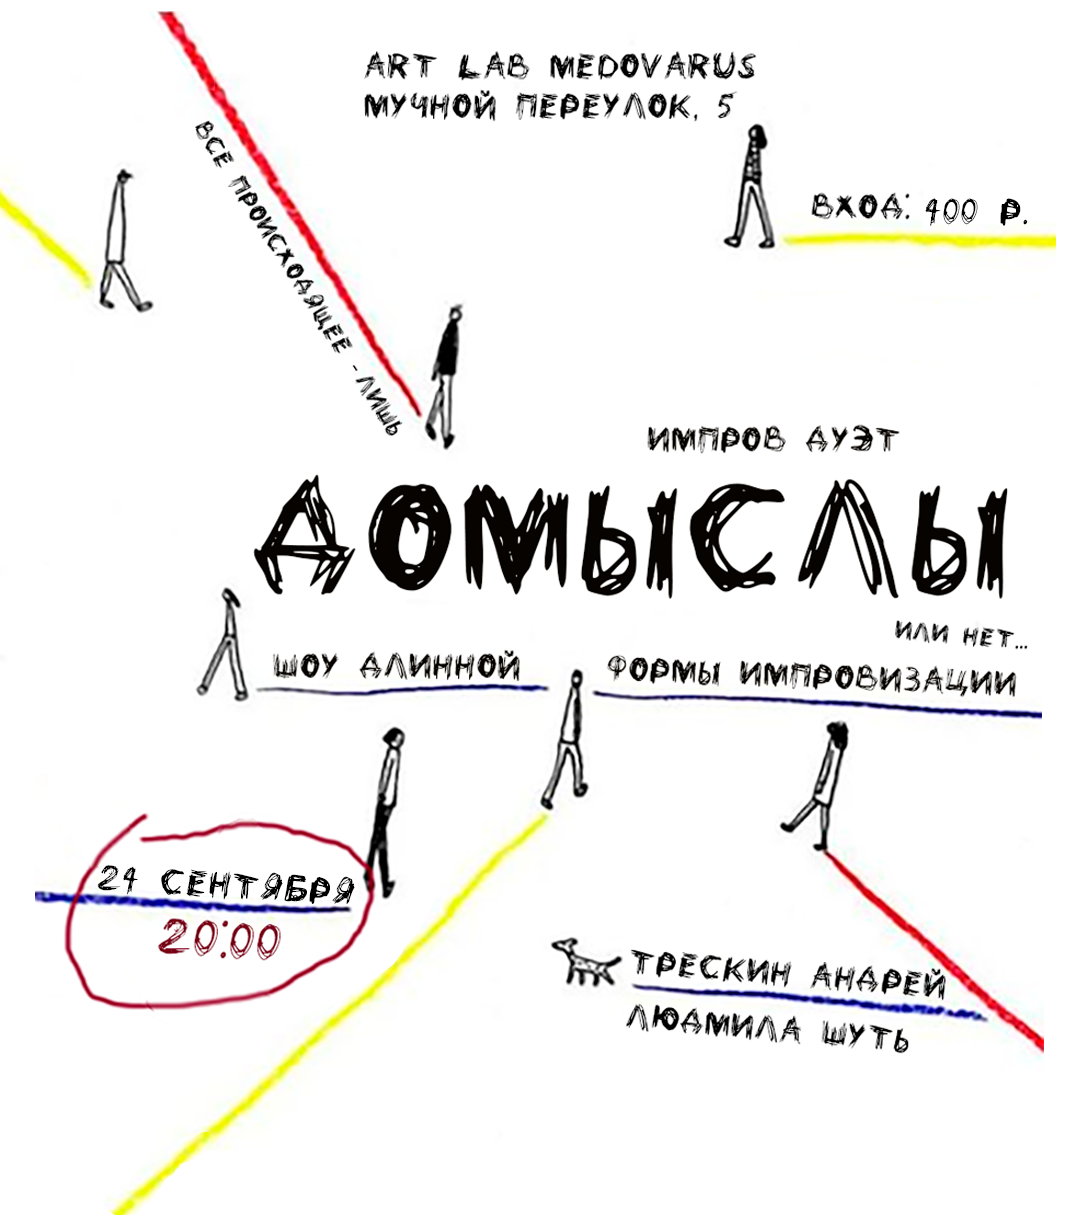 ART LAB MEDOVARUS
МУЧНОЙ ПЕРЕУЛОК, 5
ВХОД: 400 Р.
ВСЕ ПРОИСХОДЯЩЕЕ - ЛИШЬ
ИМПРОВ ДУЭТ
ДОМЫСЛЫ
ИЛИ НЕТ...
ШОУ ДЛИННОЙ ФОРМЫ ИМПРОВИЗАЦИИ
24 СЕНТЯБРЯ
20:00
ТРЕСКИН АНДРЕЙ
ЛЮДМИЛА ШУТЬ